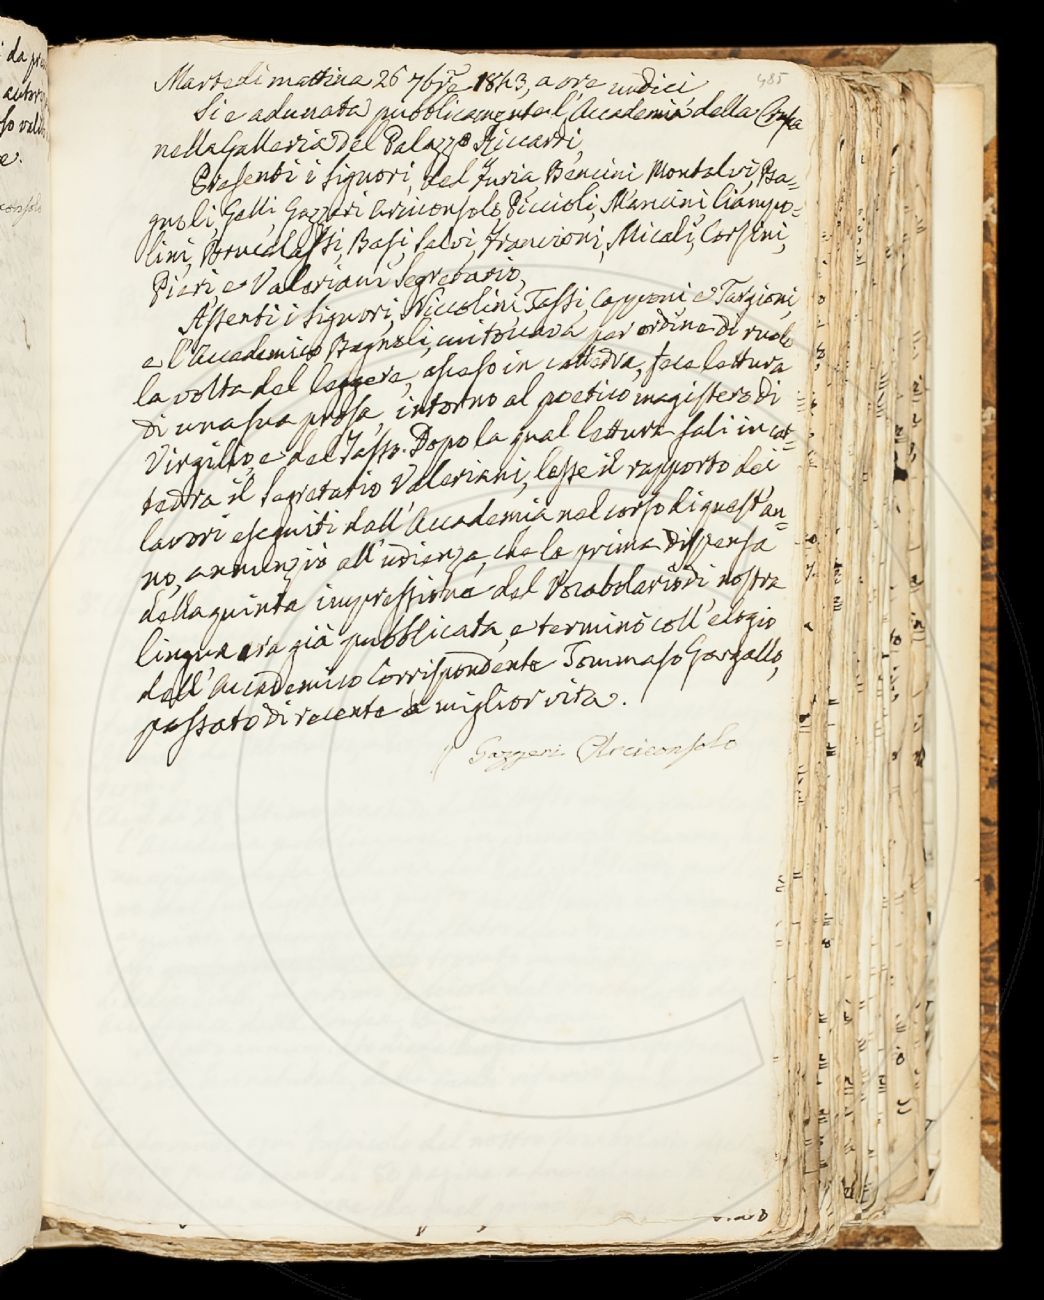 485
Martedì mattina 26 7bre 1843, a ore undici
Si è adunata pubblicamente l'Accademia della Crusca
nella Galleria del Palazzo Riccardi,
Presenti i Signori, del Furia, Bencini Montalvi, Ba=
gnoli, Gelli, Gazzeri Arciconsolo, Piccioli, Mancini, Ciampo=
lini, Brucalassi, Basi, Salvi, Francioni, Micali, Corsini,
Pieri, e Valeriani Segretario,
Assenti i Signori, Niccolini, Tassi, Capponi e Targioni,
e l'Accademico Bagnoli, cui toccava per ordine di ruolo
la volta del leggere, asceso in cattedra, fece lettura
di una sua prosa, intorno al poetico magistero di
Virgilio, e del Tasso. Dopo la qual lettura salì in cat=
tedra il Segretario Valeriani, lesse il rapporto dei
lavori eseguiti dall'Accademia nel corso di quest'an=
no, annunziò all'udienza, che la prima dispensa
della quinta impressione del Vocabolario di nostra
lingua era già pubblicata, e terminò coll'elogio
dell'Accademico Corrispondente Tommaso Gargallo,
passato di recente a miglior vita.
Gazzeri Arciconsolo